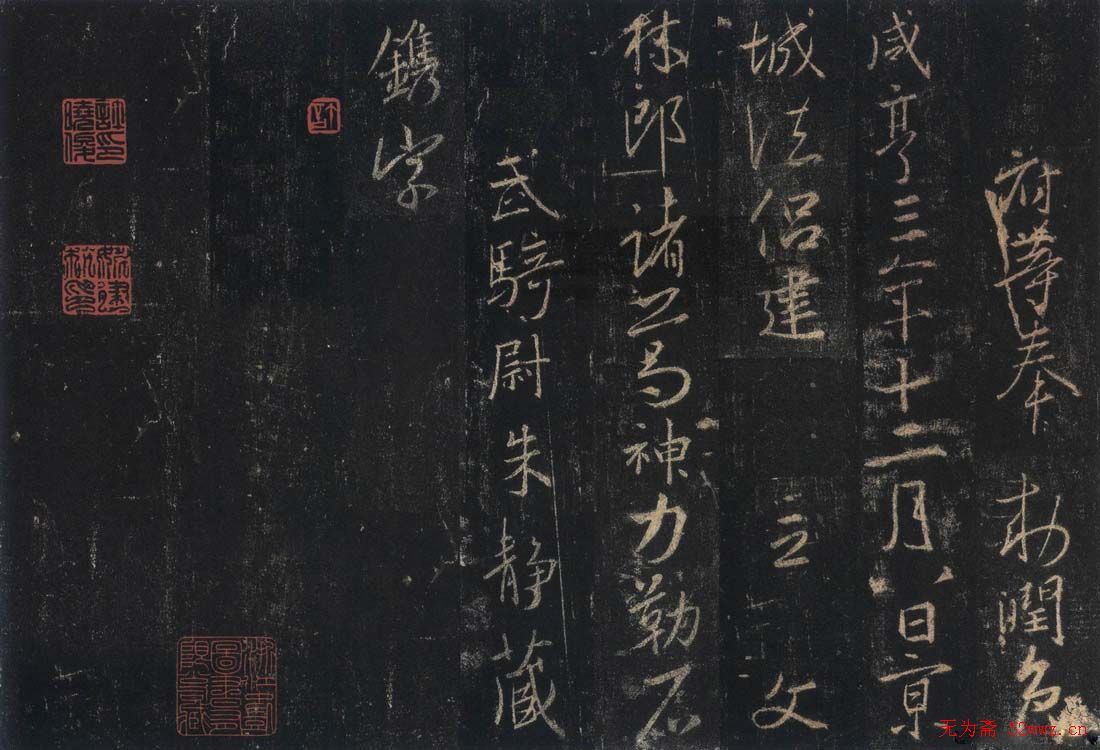 府等奉 敕潤色
咸亨三年十二月八日京
城法侶建 立 文
林郎諸葛神力勒石
武騎尉朱靜藏
鐫字
无为斋 52wwz.cn